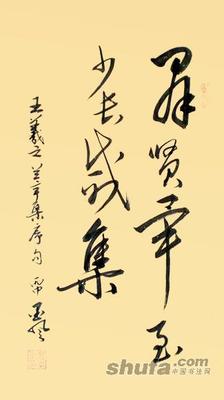 羣贤畢至
少长咸集
王羲之兰亭集序句
shufa.com
中国书法网